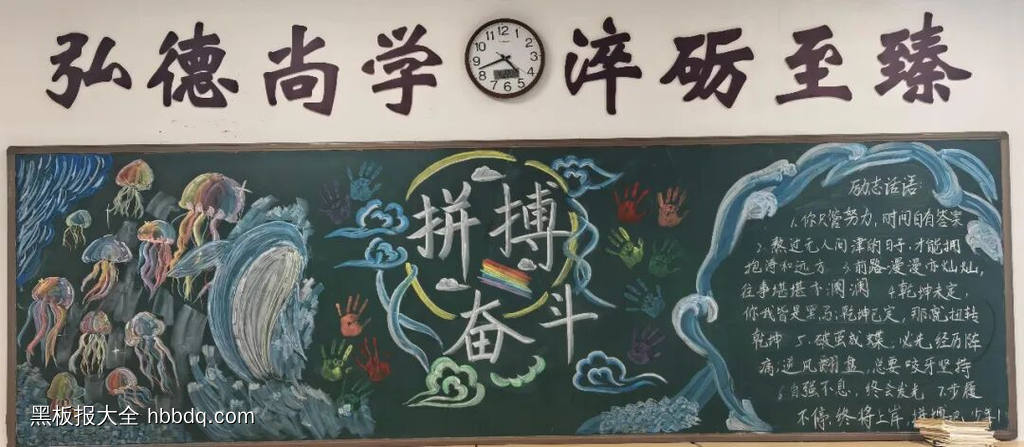 弘德尚学 淬砺至臻
拼搏
奋斗
励志话语:
1.你只管努力,时间自有答案
2.熬过无人问津的日子,才能拥
抱诗和远方 3.前路漫漫亦灿灿,
往事堪堪亦澜澜 4.乾坤未定,
你我皆是黑马;乾坤已定,那就扭转
乾坤 5.破茧成蝶,必先经历阵
痛;逆风翻盘,总要咬牙坚持
6.自强不息,终会发光 7.步履
不停,终将上岸,拼搏吧,少年!
黑板报大全 hbbdq.com